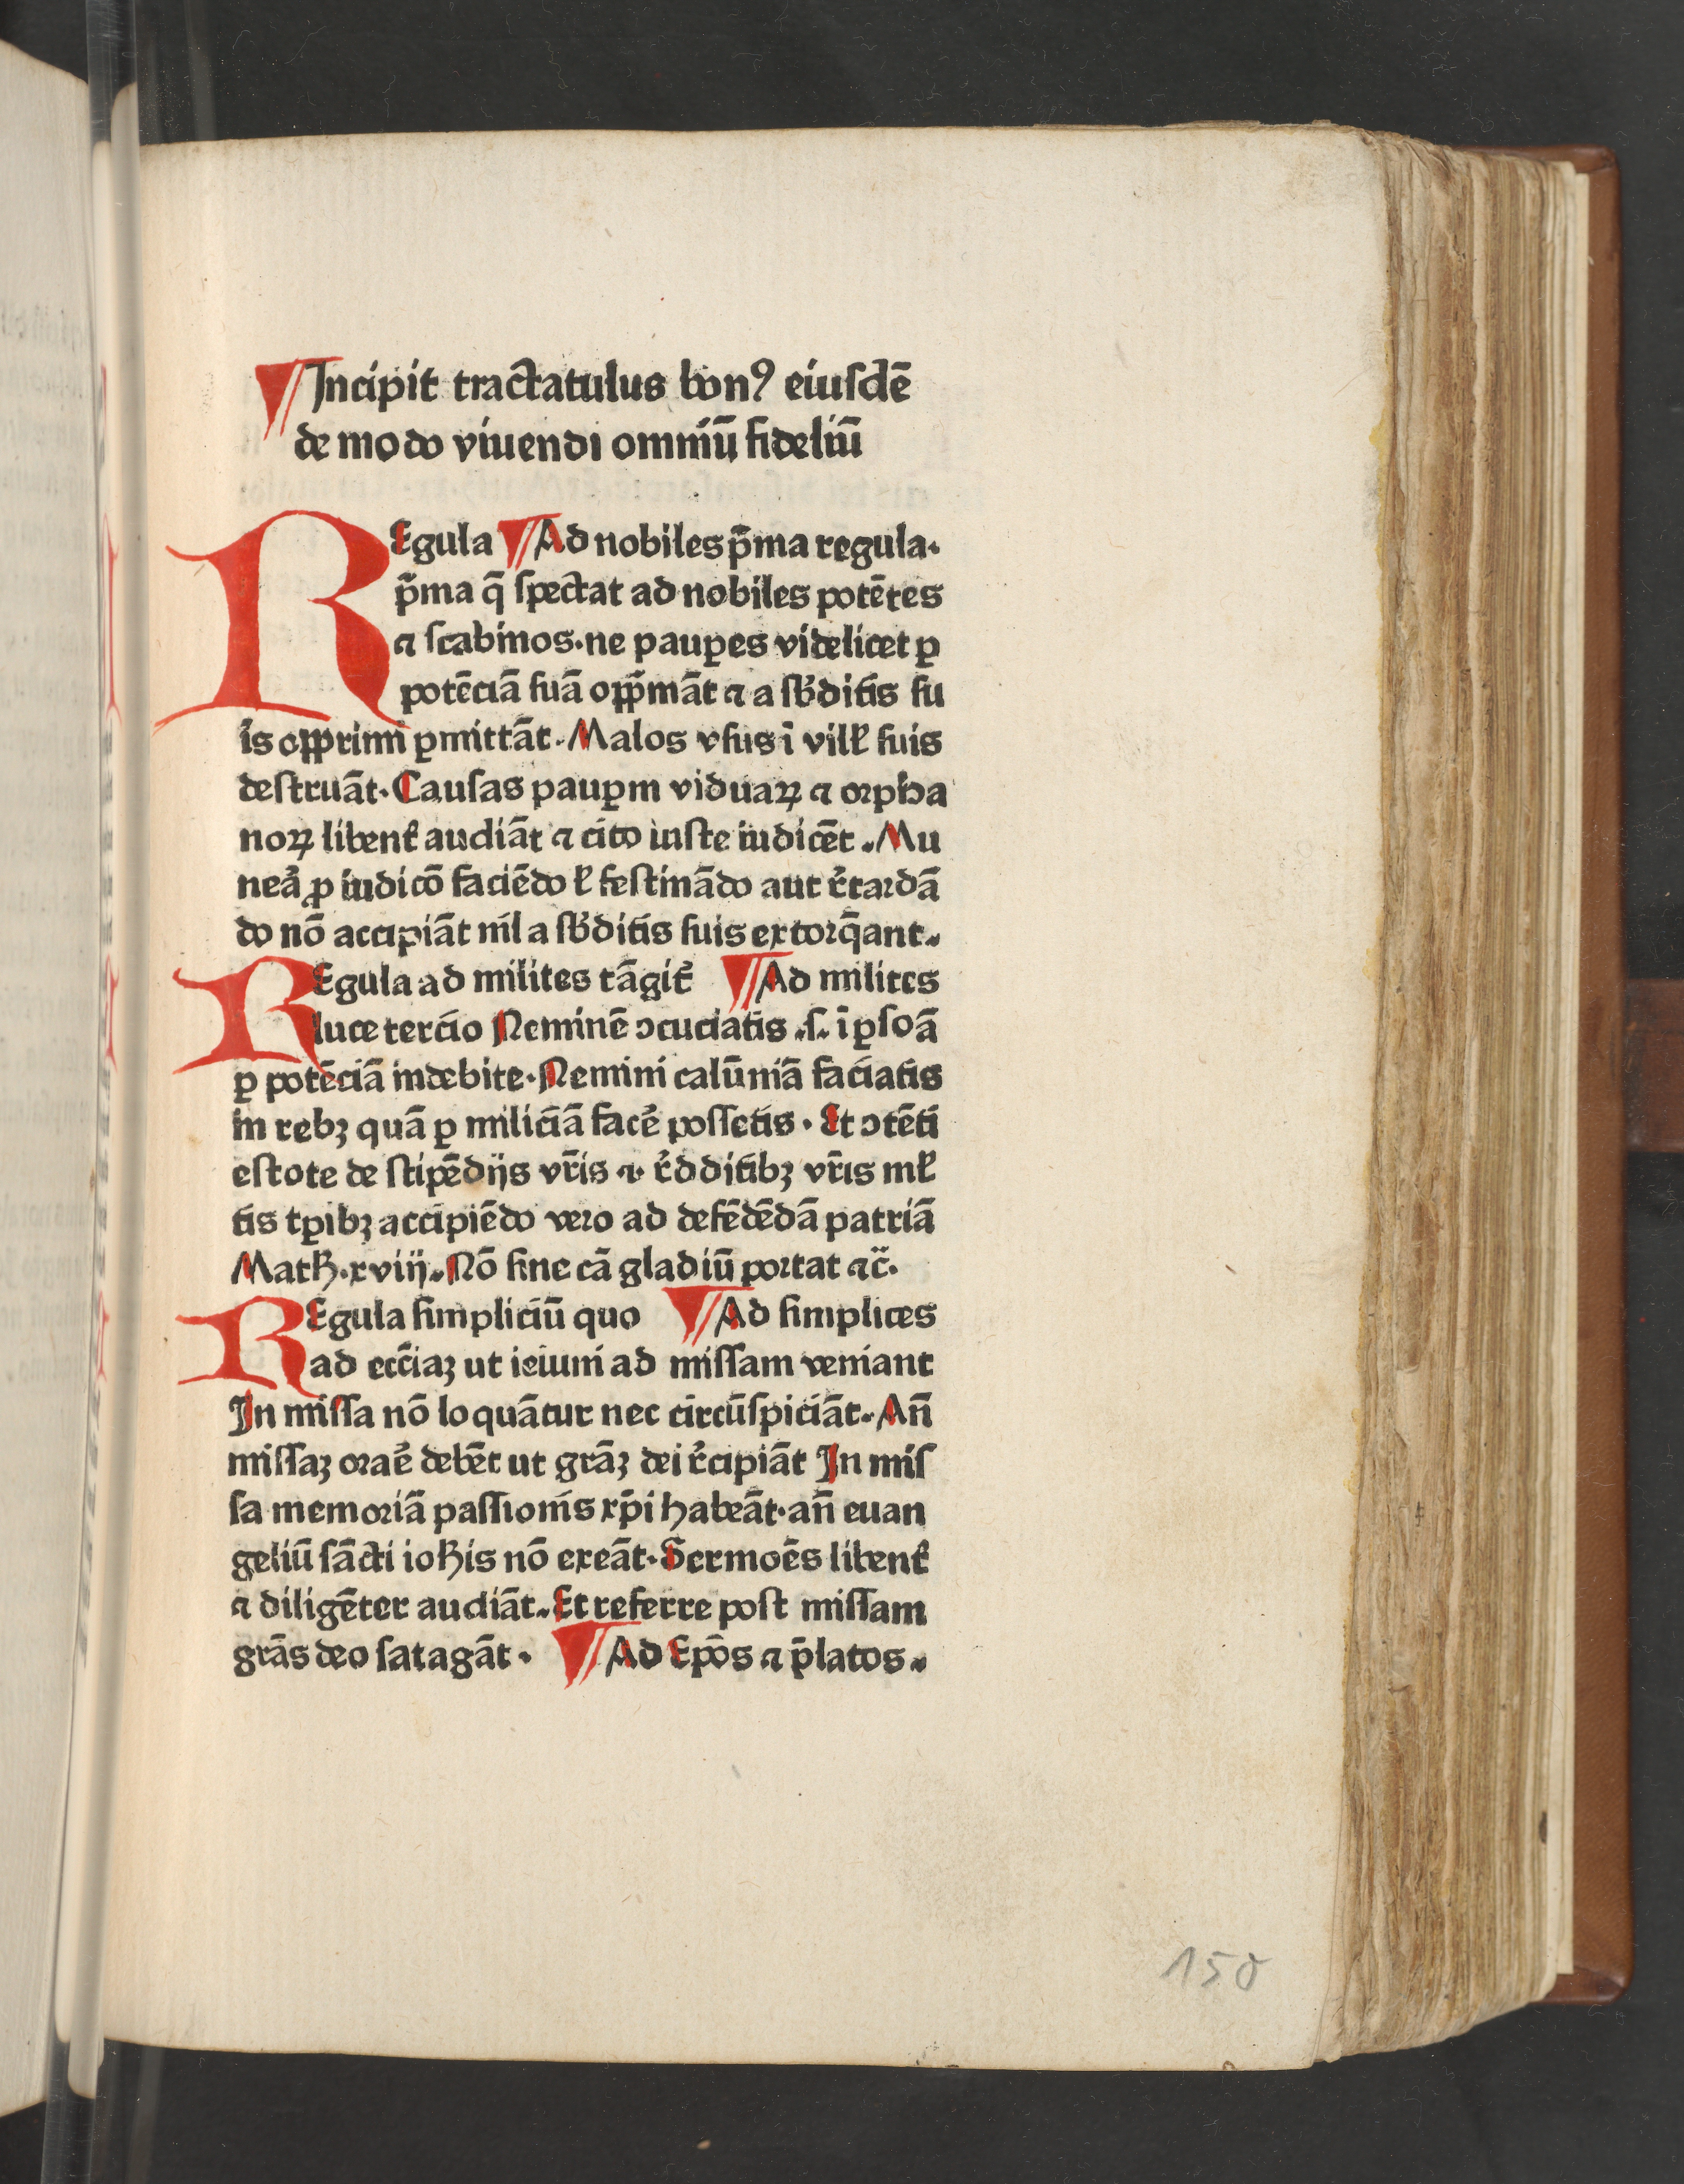 ¶Incipit tractatulus bonꝰ eiuſdē
de modo viuendi omniū fideliū
REgula ¶Ad nobiles p̄ma regula·
p̄ma q̄ ſpectat ad nobiles potētes
⁊ ſcabinos·ne pauꝑes videlicet ꝑ
potēciā ſuā opp̄māt ⁊ a ſb̾ditis ſu
is opprimi ꝑmittāt·Malos vſus ī vilł ſuis
deſtruāt·Cauſas pauꝑm viduaꝝ ⁊ orpha
noꝝ libent̾ audiāt ⁊ cito iuſte iudicēt·Mu
nea̾ ꝓ iudicō faciēdo ł feſtinādo aut r̾tardā
do nō accipiāt nı̄l a ſb̾ditis ſuis extorq̄ant·
REgula ad milites tāgit̾ ¶Ad milites
luce tercio Neminē ↄcuciatis ·ſ· ī ꝑſoā
ꝑ potēciā indebite·Nemini calūniā faciatis
in rebꝫ quā ꝑ miliciā face̾ poſſetis·Et ↄtēti
eſtote de ſtipēdijs vr̄is ⁊· r̾dditibꝫ vr̄is mł
tis tꝑibꝫ accipiēdo vero ad defēdēdā patriā
Matħ·xviij·Nō ſine cā gladiū portat ⁊c̄·
REgula ſimpliciū quo ¶Ad ſimplices
ad ecc̄iaꝫ ut ieiuni ad miſſam veniant
In miſſa nō loquātur nec circūſpiciāt·An̄
miſſaꝫ orae̾ debēt ut grāꝫ dei r̾cipiāt In miſ
ſa memoriā paſſionı̄s xp̄i habeāt·an̄ euan
geliū ſācti ioħis nō exeāt·Sermoēs libent̾
⁊ diligēter audiāt·Et referre poſt miſſam
grās deo ſatagāt· ¶Ad Ep̄os ⁊ p̄latos·
150